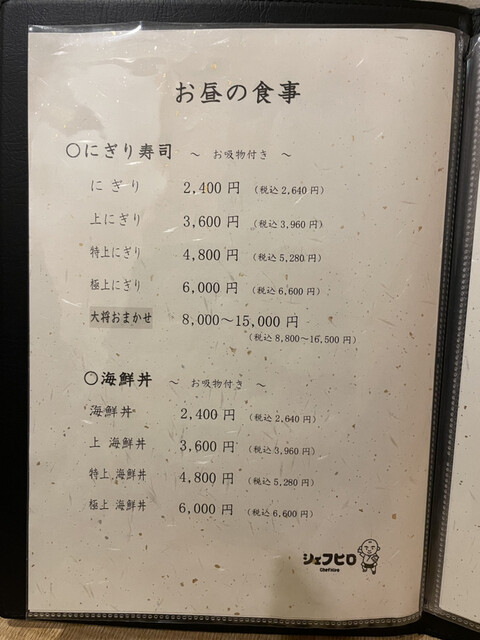 お昼の食事
〇にぎり寿司 ～ お吸物付き ～
にぎり 2,400円 (税込2,640円)
上にぎり 3,600円 (税込3,960円)
特上にぎり 4,800円 (税込5,280円)
極上にぎり 6,000円 (税込6,600円)
大将おまかせ 8,000～15,000円
(税込8,800～16,500円)
〇海鮮丼 ～ お吸物付き ～
海鮮丼 2,400円 (税込2,640円)
上 海鮮丼 3,600円 (税込3,960円)
特上 海鮮丼 4,800円 (税込5,280円)
極上 海鮮丼 6,000円 (税込6,600円)
シェフヒロ
ChefHiro